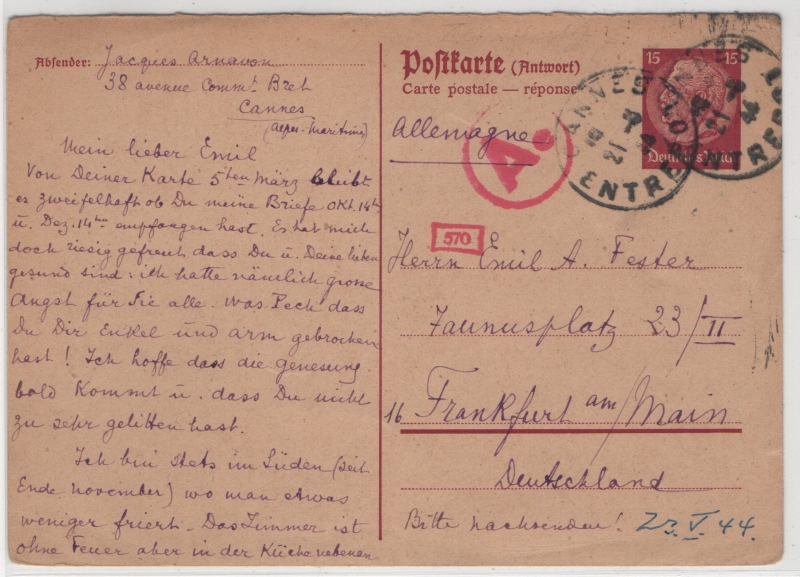 Absender: Jacques Arnavon
38 avenue Commt Bret
Cannes
(Alpes-Maritimes)
Mein lieber Emil
Von Deiner Karte 5ten März bleibt
es zweifelhaft ob Du meine Briefe Okt. 14ten
u. Dez. 14ten empfangen hast. Es hat mich
doch riesig gefreut dass Du u. Deine lieben
gesund sind: ich hatte nämlich grosse
Angst für Sie alle. Was Pech dass
Du Dir Enkel und arm gebrochen
hast! Ich hoffe dass die genesung
bald kommt u. dass Du nicht
zu sehr gelitten hast.
Ich bin stets im Süden (seit
Ende november) wo man etwas
weniger friert. Das Zimmer ist
ohne Feuer aber in der Küche nebenan
Postkarte (Antwort)
Carte postale — réponse
Allemagne
A.
CANNES
21
ENTREPOT
15 15
Deutsches Reich
570
Herrn Emil A. Fester
Taunusplatz 23/II
16 Frankfurt am/Main
Deutschland
Bitte nachsenden! 23.V.44.